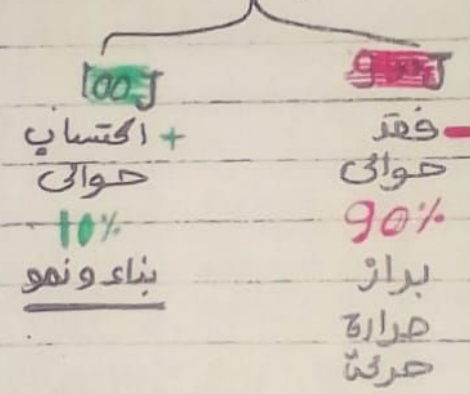 900J
- فقد
حوالى
90%
براز
حرارة
حركة
100J
+ اكتساب
حوالى
10%
بناء ونمو